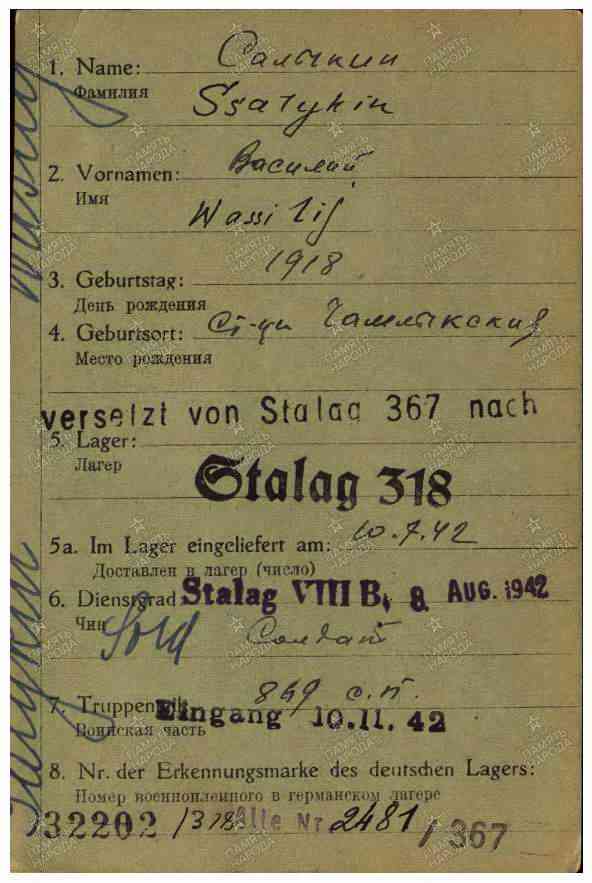 1. Name: Салыкин
Фамилия
Ssalykin
2. Vornamen: Василий
Имя
Wassilij
3. Geburtstag: 1918
День рождения
4. Geburtsort: Ст-ци
Место рождения
versetzt von Stalag 367 nach
5. Lager:
Лагер
Stalag 318
5a. Im Lager eingeliefert am: 10.7.42
Доставлен в лагер (число)
6. Dienstgrad: Stalag VIII B, 8. AUG. 1942
Чин Sold Солдат
7. 849 с.п.
Eingang 10.11.42
Воинская часть
8. Nr. der Erkennungsmarke des deutschen Lagers:
Номер военнопленного в германском лагере
32202 /318 Alte Nr. 2481 / 367
ПАМЯТЬ НАРОДА